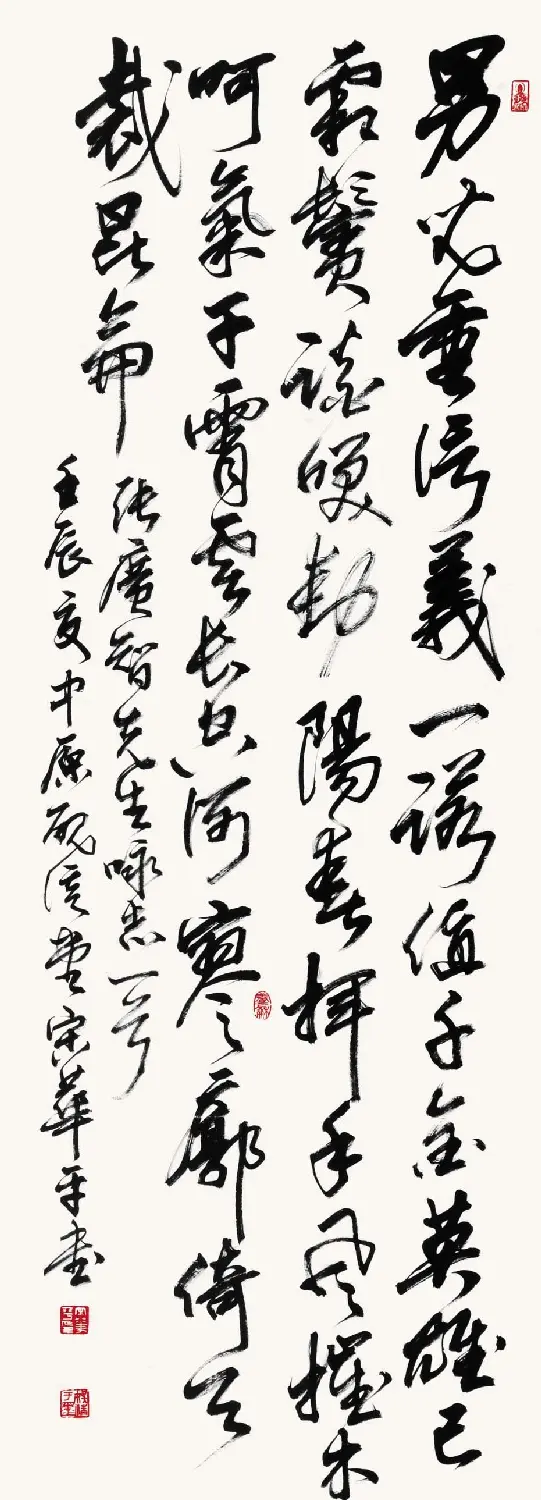 男兒重信義一諾值千金英雄已
霜鬢動陽春揮手風摧木
呵氣干霄雲長空何寥廓倚天
裁昆侖
張廣智先生咏志一首
壬辰夏中原堂宋華平書